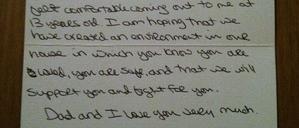 felt comfortable coming out to me at
13 years old. I am hoping that we
have created an environment in our
house in which you know you are
loved, you are safe, and that we will
support you and fight for you.
Dad and I love you very much.